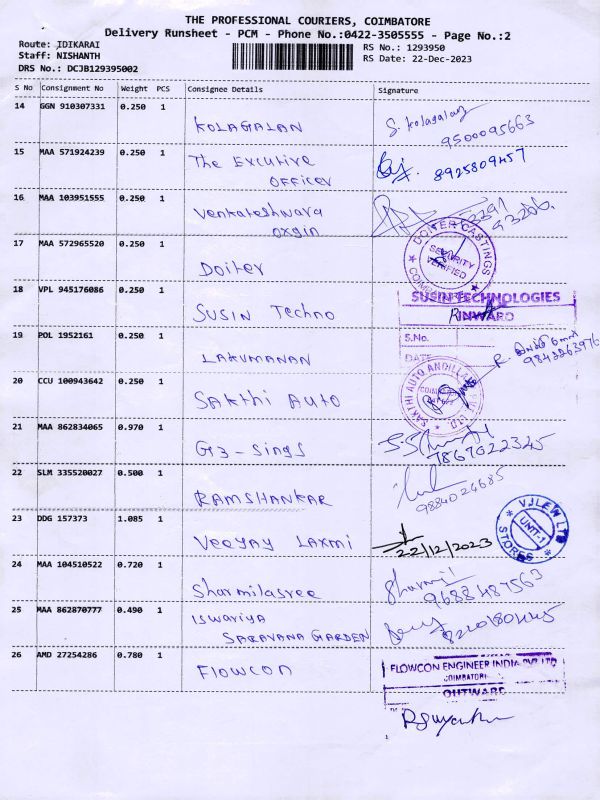 THE PROFESSIONAL COURIERS, COIMBATORE
Delivery Runsheet - PCM - Phone No.:0422-3505555 - Page No.:2
Route: IDIKARAI
RS No.: 1293950
Staff: NISHANTH
RS Date: 22-Dec-2023
DRS No.: DCJB129395002
S No Consignment No Weight PCS Consignee Details Signature
14 GGN 910307331 0.250 1 KOLAGALAN S. Kolagalan
9500095663
15 MAA 571924239 0.250 1 The Excutive
OFFICER 8925809457
16 MAA 103951555 0.250 1 Venkateshwara
oxgin
17 MAA 572965520 0.250 1 Doiter
DOITER CASTINGS
SECURITY
VERIFIED
18 VPL 945176086 0.250 1 SUSIN Techno
SUSIN TECHNOLOGIES
INWARD
S.No.
DATE
19 POL 1952161 0.250 1 LAKUMANAN
20 CCU 100943642 0.250 1 SAKthi AUTO
SAKTHI AUTO
21 MAA 862834065 0.970 1 G3-SingS
7867022345
22 SLM 335520027 0.500 1 RAMSHANKAR
9884024685
23 DDG 157373 1.085 1 VeeJAY LAXMI
22/12/2023
STORES
UNIT-1
24 MAA 104510522 0.720 1 Sharmilasree Sharmil
9688487563
25 MAA 862870777 0.490 1 ISWARIYA
SARAVANA GARDEN
26 AMD 27254286 0.780 1 FLOWCON
FLOWCON ENGINEER INDIA PVT LTD
COIMBATORE
OUTWARD